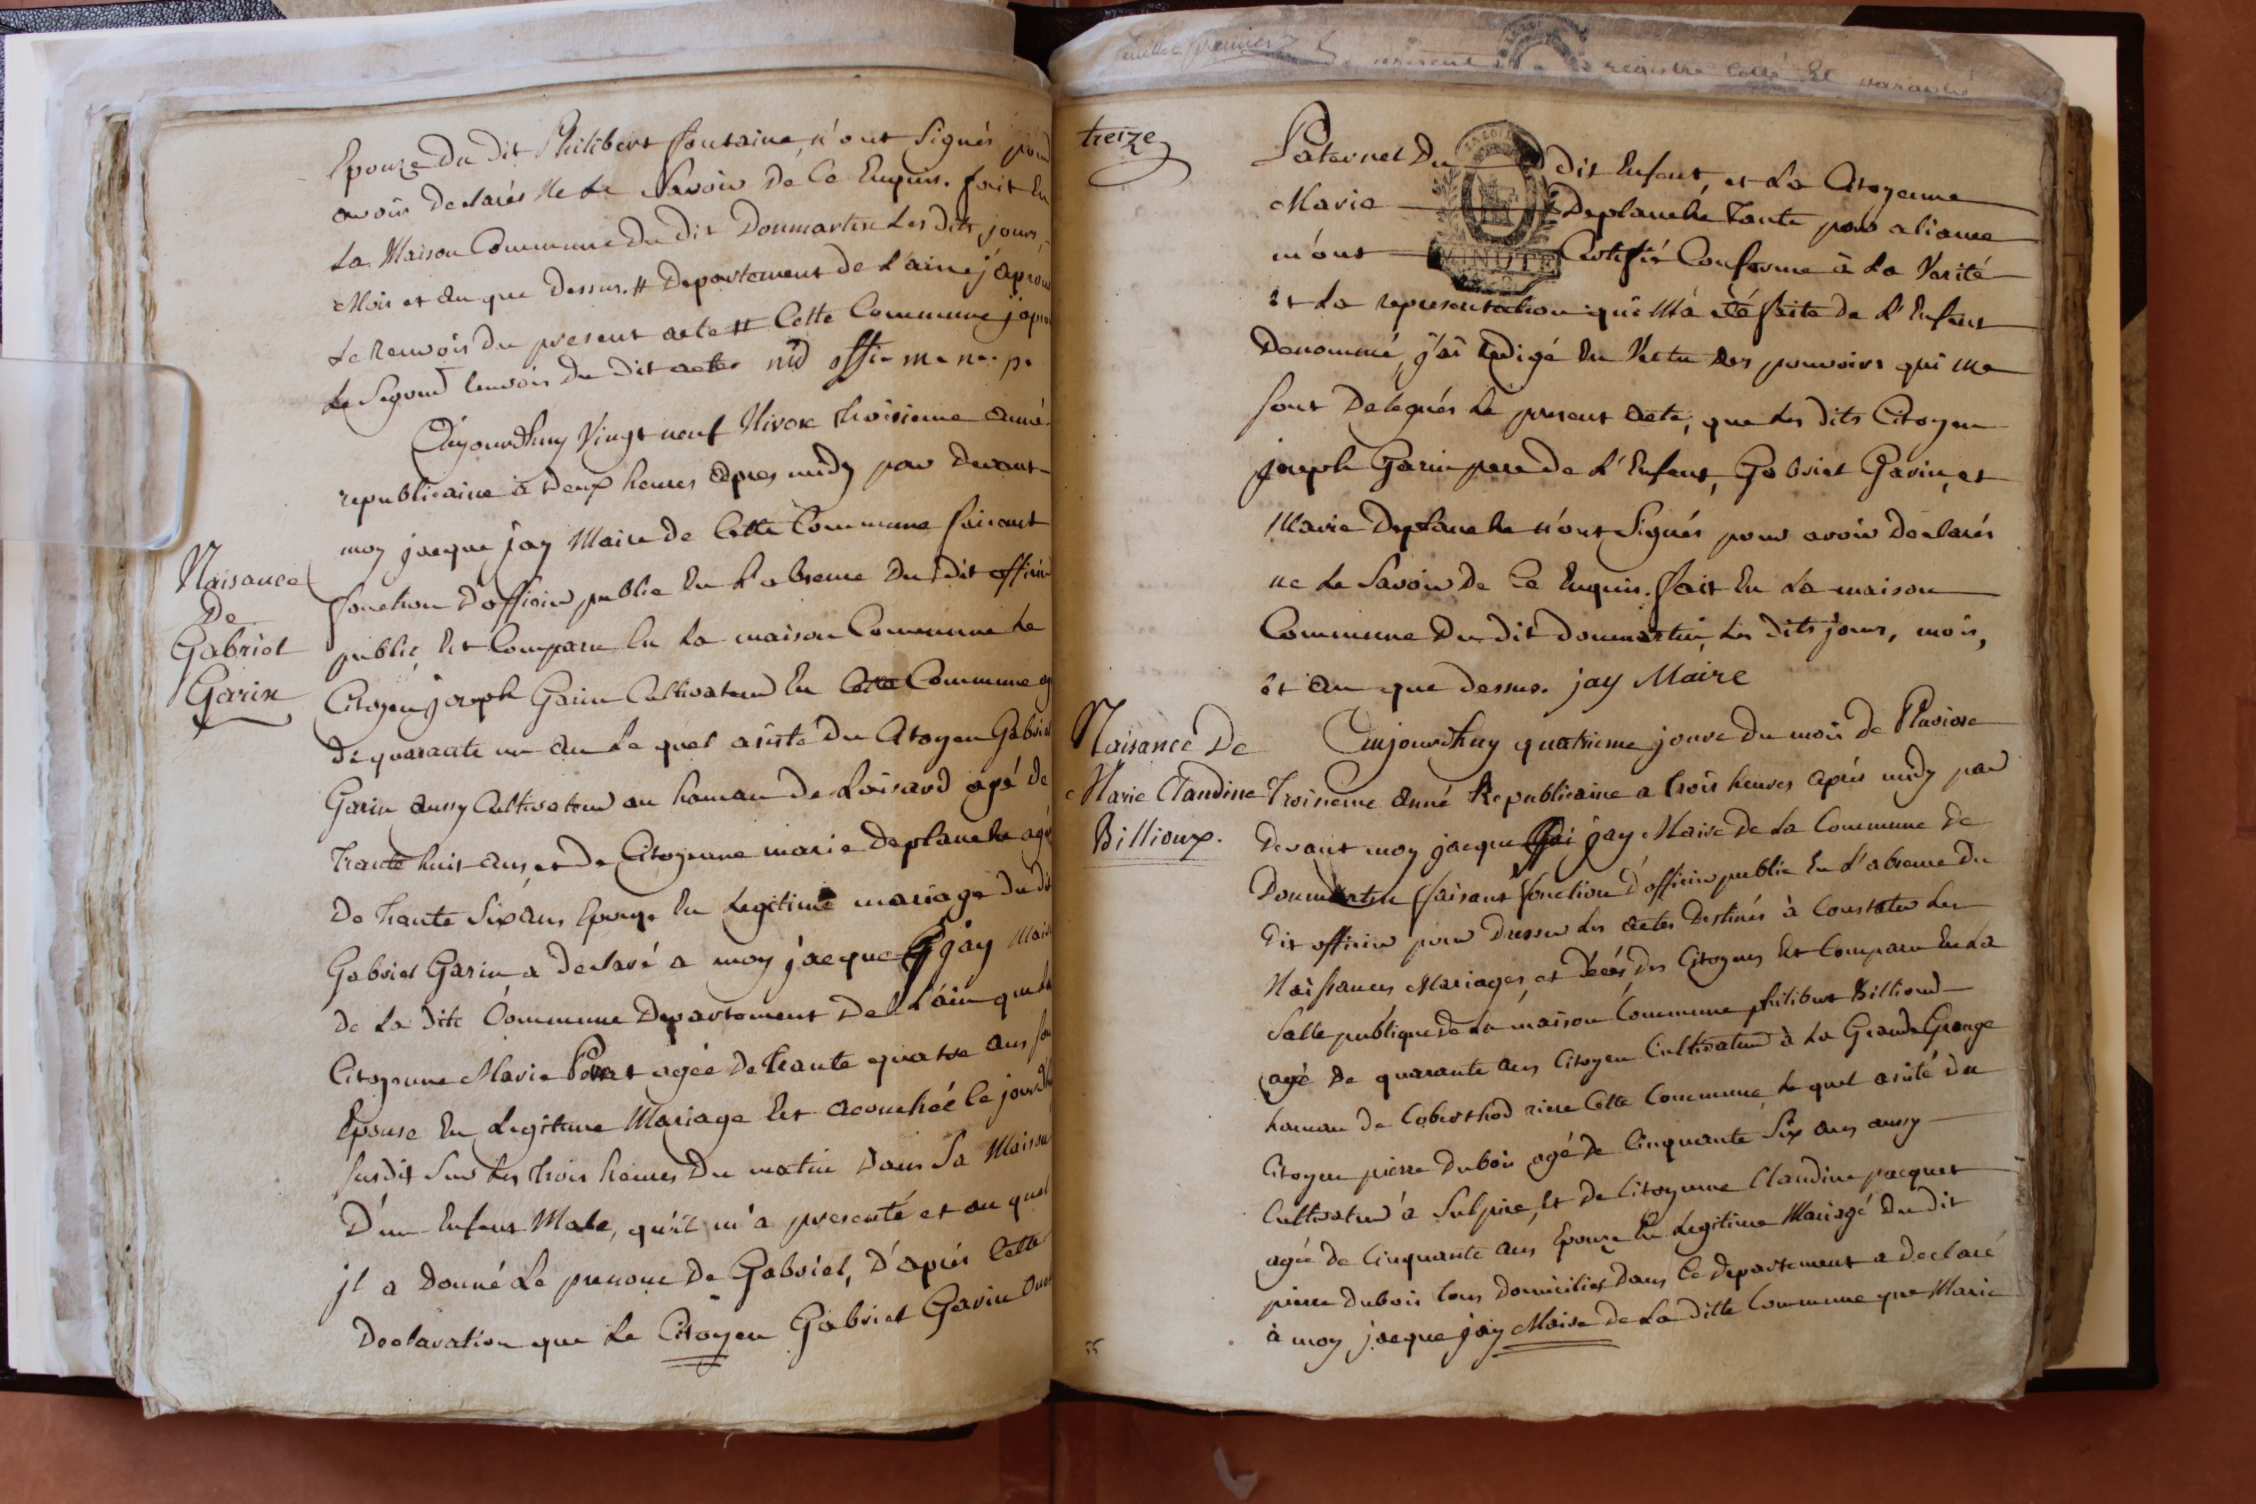 Epouze Du dit Philibert fontaine, n'ont Signés pour
avoir Declarés Ne Le Savoir De Ce Enquis. fait En
La Maison Commune Du dit Donmartin Les Dits jours,
Mois et an que Dessus. # Departement de L'ain j'aprouve
Le Renvois Du present acte # Cette Commune j'aprouve
Le Segond Renvois Du Dit acte
Aujourdhuy Vingt neuf Nivose throisieme anné
republicaine à Deux heures apres midy par Devant
moy jacque jay Maire de Cette Commune faisant
fonction d'officier public En L'absence Du dit officier
public, Est Comparu En La maison Commune Le
Citoyen joseph Garin Cultivateur En Cette Commune
De quarante un an Le quel asisté Du Citoyen Gabriel
Garin aussy Cultivateur au hamau De Loisard agé de
Trante huit ans, et De Citoyenne marie Deplanche agé
De trante Six ans Epouze En Legitime mariage Du dit
Gabriel Garin a Declaré a moy jacque jay Maire
De La Dite Commune Departement De L'ain que La
Citoyenne Marie agée De trante quatre ans
Epouse En Legitime Mariage Est acouchée Ce jourdh
susdit Sur Les trois heures Du matin Dans Sa Maison
D'un Enfant Male, qu'il m'a presenté et au quel
jl a Donné Le prenom De Gabriel, D'après Cette
Declaration que Le Citoyen Gabriel Garin
Naisance
De
Gabriel
Garin
treize
Paternel Du dit Enfant, et La Citoyenne
Marie Deplanche Tante par aliance
m'ont Certifié Conforme à La Verité
et La representation qui M'a été faite De L'Enfant
Denommé, j'ai redigé En Vertu Des pouvoirs qui me
sont Delegués Le present acte, que Les dits Citoyen
joseph Garin pere De L'Enfant, Gabriel Garin, et
Marie Deplanche n'ont Signés pour avoir Declarés
ne Le Savoir De Ce Enquis. fait En La maison
Commune Du dit donmartin, Les dits jour, mois,
et an que dessus. jay Maire
MINUTE
Naisance De
Marie Claudine
Billioux.
Aujourdhuy quatrieme jours Du mois De Pluviose
Troisieme anné Republicaine a trois heures après midy par
Devant moy jacque jay Maire De La Commune De
Donmartin faisant fonction d'officier public En L'absence Du
Dit officier pour Dresser Les actes Destinés à Constater Les
Naissances Mariages, et Décés, Des Citoyens Est Comparu En La
Salle publique De La maison Commune philibert Billioud
agé De quarante ans Citoyen Cultivateur à La Grande Grange
hamau De riere Cette Commune Le quel asisté Du
Citoyen pierre Dubois agé De Cinquante Six ans aussy
Cultivateur à Sulpice, Et De Citoyenne Claudine pacquet
agée De Cinquante ans Epouze En Legitime Mariage Du dit
pierre Dubois tous Domiciliés Dans Ce departement a Declaré
à moy jacque jay Maire De La ditte Commune que Marie